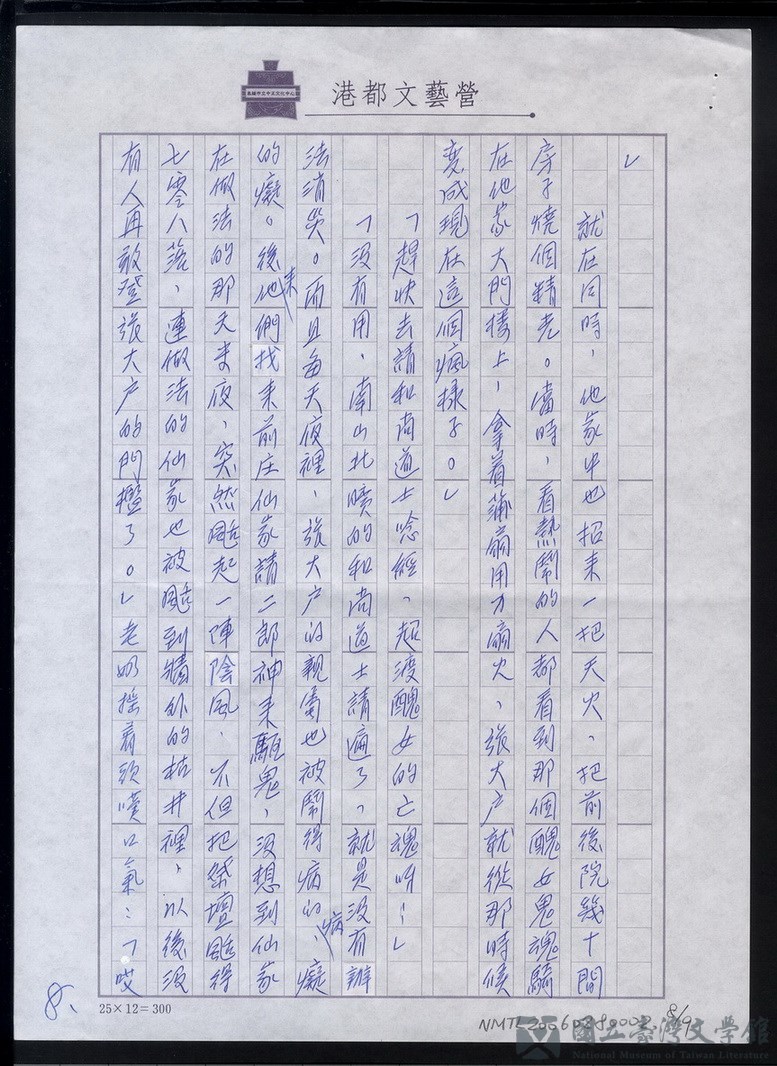 港都文藝營
」
就在同時，他家中也招來一把天火，把前後院幾十間
房子燒個精光。當時，看熱鬧的人都看到那個醜女鬼魂騎
在他家大門樓上，拿著蒲扇用力扇火，張大戶就從那時候
變成現在這個瘋樣子。」
「趕快去請和尚道士唸經，超渡醜女的亡魂呀！」
「沒有用，南山北嶺的和尚道士請遍了，就是沒有辦
法消災。而且每天夜裡，張大戶的親屬也被鬧得病的病，癡
的癡。後來他們找來前庄仙家請二郎神來驅鬼，沒想到仙家
在做法的那天半夜，突然颳起一陣陰風，不但把祭壇颳得
七零八落，連做法的仙家也被颳到牆外的枯井裡，以後沒
有人再敢登張大戶的門檻了。」老奶搖著頭嘆口氣：「哎
25×12=300
8、
NMTL20060280002 8/9
國立臺灣文學館
National Museum of Taiwan Literature